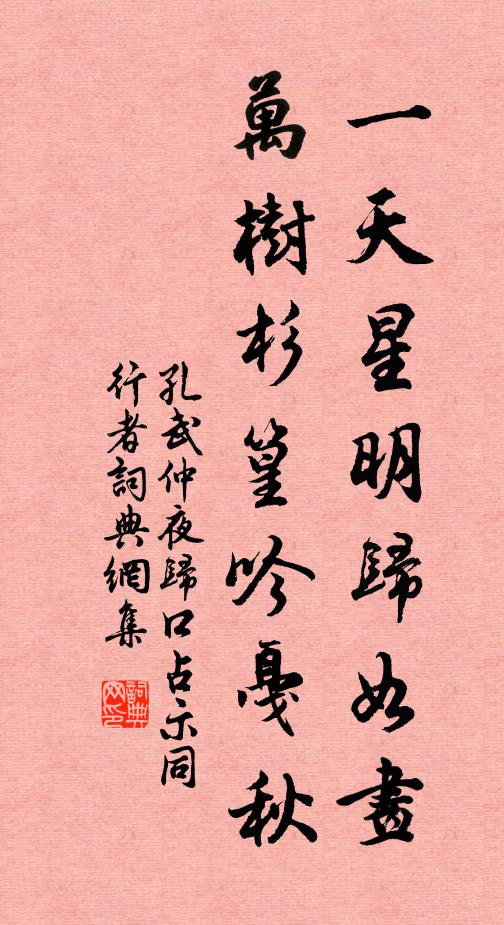 一天星明歸如晝
萬樹杉篁吟戛秋
孔武仲夜歸口占示同
行者詞典網集
詞典网印